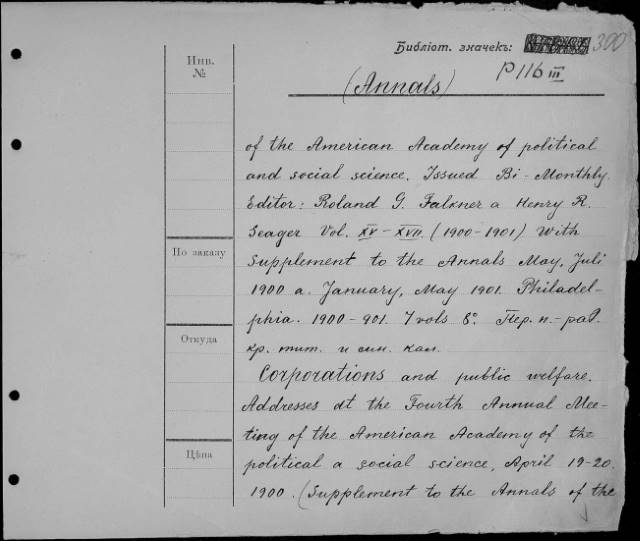 Библіот. значекъ: 300
P 116 III
Инв.
№
(Annals)
of the American Academy of political
and social science. Issued Bi-Monthly.
Editor: Roland G. Falkner a Henry R.
Seager Vol. XV-XVII. (1900-1901) With
По заказу
Supplement to the Annals May, Juli
1900 a. January, May 1901. Philadel-
phia. 1900-901. 7 vols 8º. Пер. п.-
Откуда
кр. тит. и
Corporations and public welfare.
Addresses at the Fourth Annual Mee-
ting of the American Academy of the
Цѣна
political a social science, April 19-20.
1900. (Supplement to the Annals of the